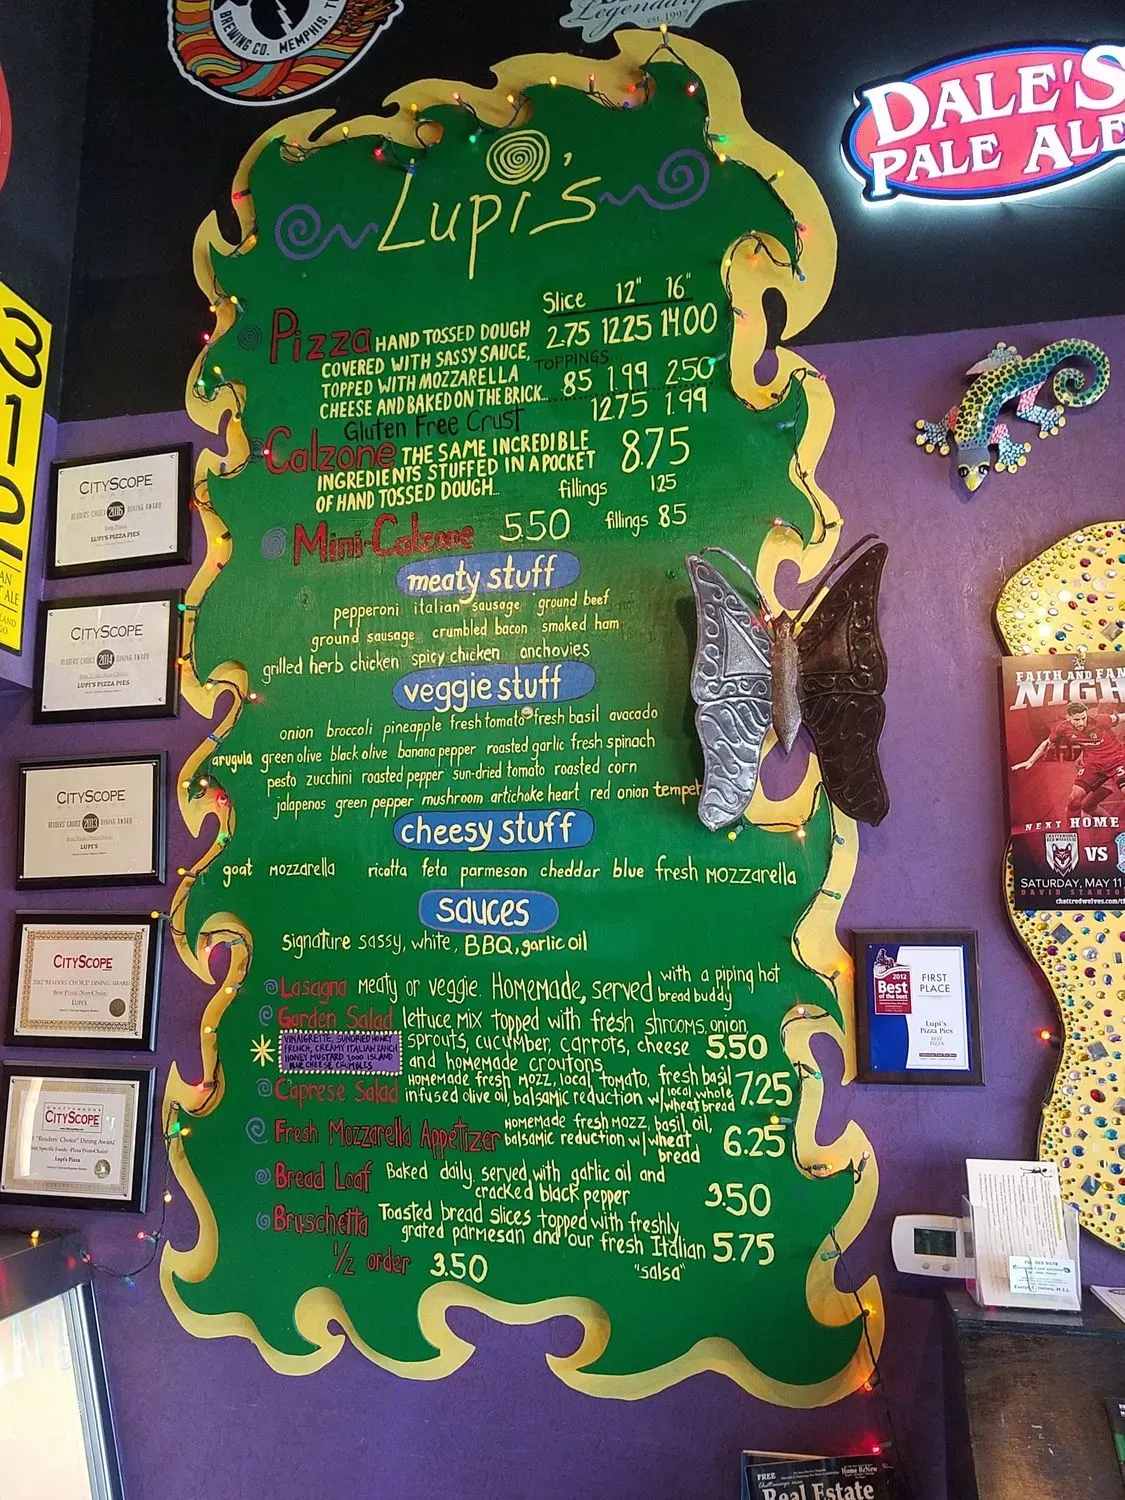 BREWING CO. MEMPHIS, T
Legendary
est. 1997
DALE'S
PALE ALE
Lupi's
Slice 12" 16"
Pizza HAND TOSSED DOUGH 2.75 12.25 14.00
COVERED WITH SASSY SAUCE, TOPPINGS
TOPPED WITH MOZZARELLA 85 1.99 2.50
CHEESE AND BAKED ON THE BRICK...
Gluten Free Crust 12.75 1.99
Calzone THE SAME INCREDIBLE 8.75
INGREDIENTS STUFFED IN A POCKET
OF HAND TOSSED DOUGH... fillings 1.25
Mini-Calzone 5.50 fillings 85
meaty stuff
pepperoni italian sausage ground beef
ground sausage crumbled bacon smoked ham
grilled herb chicken spicy chicken anchovies
veggie stuff
onion broccoli pineapple fresh tomato fresh basil avocado
arugula green olive black olive banana pepper roasted garlic fresh spinach
pesto zucchini roasted pepper sun-dried tomato roasted corn
jalapenos green pepper mushroom artichoke heart red onion tempeh
cheesy stuff
goat mozzarella ricotta feta parmesan cheddar blue fresh mozzarella
sauces
signature sassy, white, BBQ, garlic oil
Lasagna meaty or veggie. Homemade, served with a piping hot
bread buddy
Garden Salad lettuce mix topped with fresh shrooms, onion,
sprouts, cucumber, carrots, cheese 5.50
and homemade croutons
VINAIGRETTE, SUNDRIED HONEY
FRENCH, CREAMY ITALIAN, RANCH
HONEY MUSTARD, 1000 ISLAND
BLUE CHEESE CRUMBLES
Caprese Salad Homemade fresh mozz, local tomato, fresh basil 7.25
infused olive oil, balsamic reduction w/ local whole
wheat bread
Fresh Mozzarella Appetizer Homemade fresh mozz, basil, oil, 6.25
balsamic reduction w/ wheat
bread
Bread Loaf Baked daily, served with garlic oil and
cracked black pepper 3.50
Bruschetta Toasted bread slices topped with freshly
grated parmesan and our fresh Italian 5.75
"salsa"
1/2 order 3.50
312
CITYSCOPE
READERS' CHOICE 2016 DINING AWARD
Best Pizza
LUPI'S PIZZA PIES
CITYSCOPE
READERS' CHOICE 2014 DINING AWARD
LUPI'S PIZZA PIES
CITYSCOPE
READERS' CHOICE 2013 DINING AWARD
LUPI'S
CITYSCOPE
2012 "READERS' CHOICE" DINING AWARD
Best Pizza (Non-Chain)
LUPI'S
CITYSCOPE
"Readers' Choice" Dining Award
Specific Foods - Pizza (Non-Chain)
Lupi's Pizza
FAITH AND FAM
NIGH
NEXT HOME
VS
SATURDAY, MAY 11
DAVID STANTO
chattredwolves.com/
2012
Best
of the best
FIRST
PLACE
Lupi's
Pizza Pies
BEST
PIZZA
FREE
Home ReNew
Real Estate